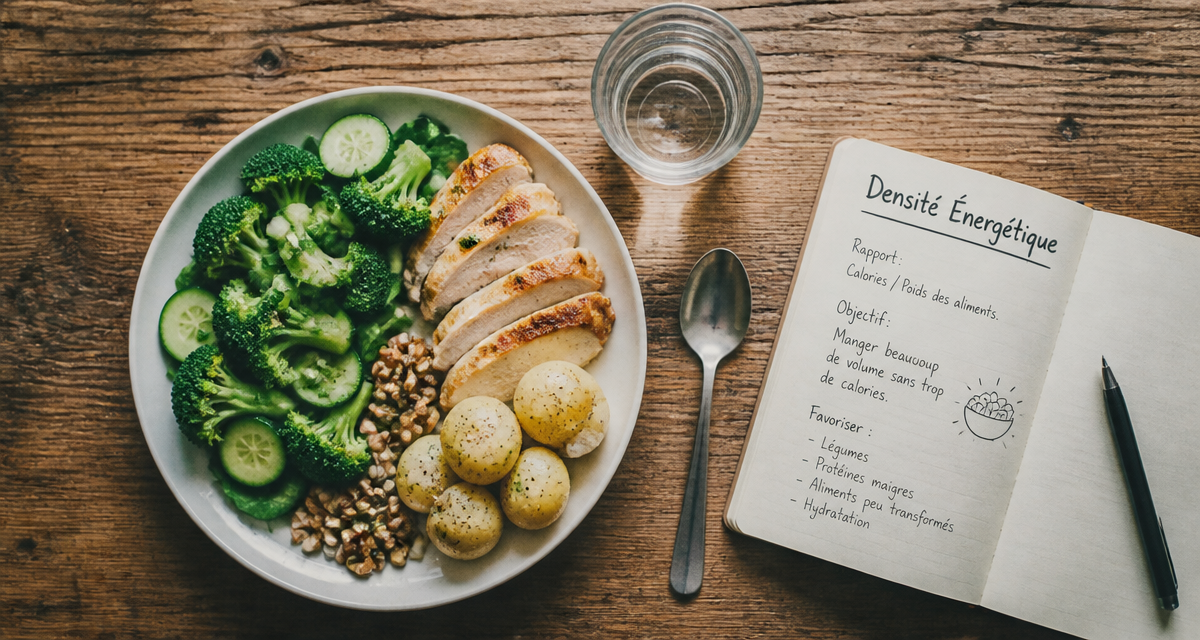 Densité Énergétique
Rapport:
Calories / Poids des aliments.
Objectif:
Manger beaucoup
de volume sans trop
de calories.
Favoriser :
- Légumes
- Protéines maigres
- Aliments peu transformés
- Hydratation